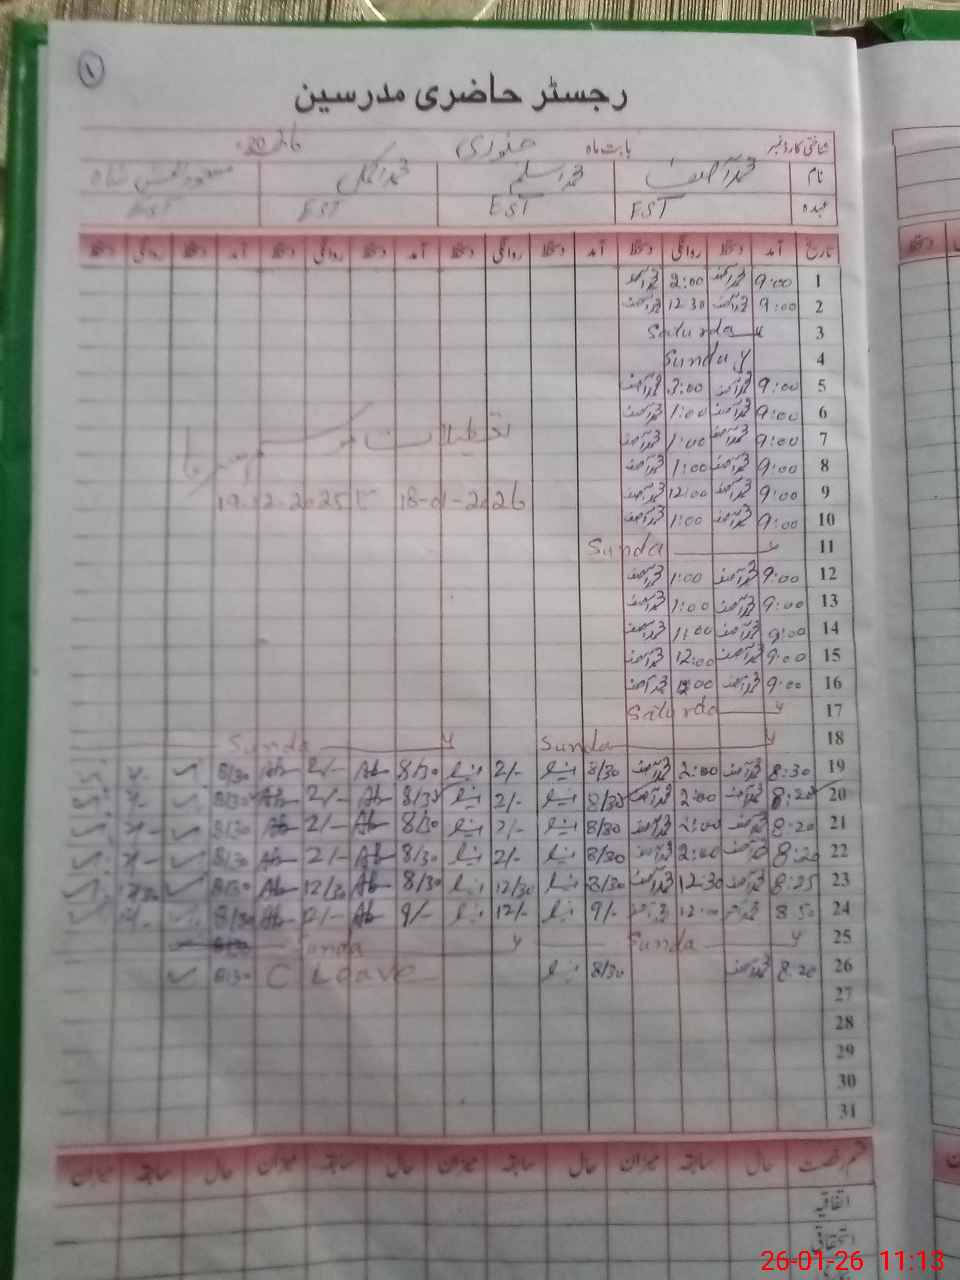 ۱
رجسٹر حاضری مدرسین
شناختی کارڈ نمبر بابت ماہ جنوری 2026
نام محمد آصف محمد اسلم محمد اکمل
عہدہ EST EST EST EST
تاریخ آمد دستخط روانگی دستخط آمد دستخط روانگی دستخط آمد دستخط روانگی دستخط آمد دستخط روانگی دستخط
1 9:00 محمد آصف 2:00 محمد آصف
2 9:00 محمد آصف 12 30 محمد آصف
3 Saturday
4 Sunday
5 9:00 محمد آصف 3:00 محمد آصف
6 9:00 محمد آصف 1:00 محمد آصف
7 9:00 محمد آصف 1:00 محمد آصف
تعطیلات موسم سرما
8 9:00 محمد آصف 1:00 محمد آصف
9 9:00 محمد آصف 12:00 محمد آصف
19-12-2025 تا 18-01-2026
10 9:00 محمد آصف 1:00 محمد آصف
11 Sunday
12 9:00 محمد آصف 1:00 محمد آصف
13 9:00 محمد آصف 1:00 محمد آصف
14 9:00 محمد آصف 1:00 محمد آصف
15 9:00 محمد آصف 12:00 محمد آصف
16 9:00 محمد آصف 12:00 محمد آصف
17 Saturday
18 Sunday Sunday
19 8:30 محمد آصف 2:00 محمد آصف 8/30 2/- 8/30 Ab 2/- Ab 8/30
20 8:20 محمد آصف 2:00 محمد آصف 8/30 2/- 8/30 Ab 2/- Ab 8/30
21 8:20 محمد آصف 2:00 محمد آصف 8/30 2/- 8/30 Ab 2/- Ab 8/30
22 8:20 محمد آصف 2:00 محمد آصف 8/30 2/- 8/30 Ab 2/- Ab 8/30
23 8:25 محمد آصف 12:30 محمد آصف 8/30 12/30 8/30 Ab 12/30 Ab 8/30
24 8:50 محمد آصف 12:00 محمد آصف 9/- 12/- 9/- Ab Ab 8/30
25 Sunday Sunday
26 8:20 محمد آصف 8/30 C Leave 8/30
27
28
29
30
31
قسم رخصت حال سابقہ میزان حال سابقہ میزان حال سابقہ میزان حال سابقہ میزان
اتفاقیہ
استحقاقی
26-01-26 11:13